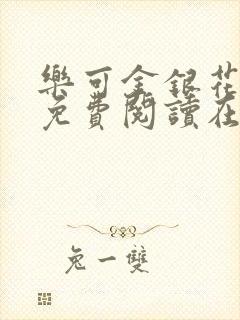 樂可金銀花
免費閱讀在
兔一雙